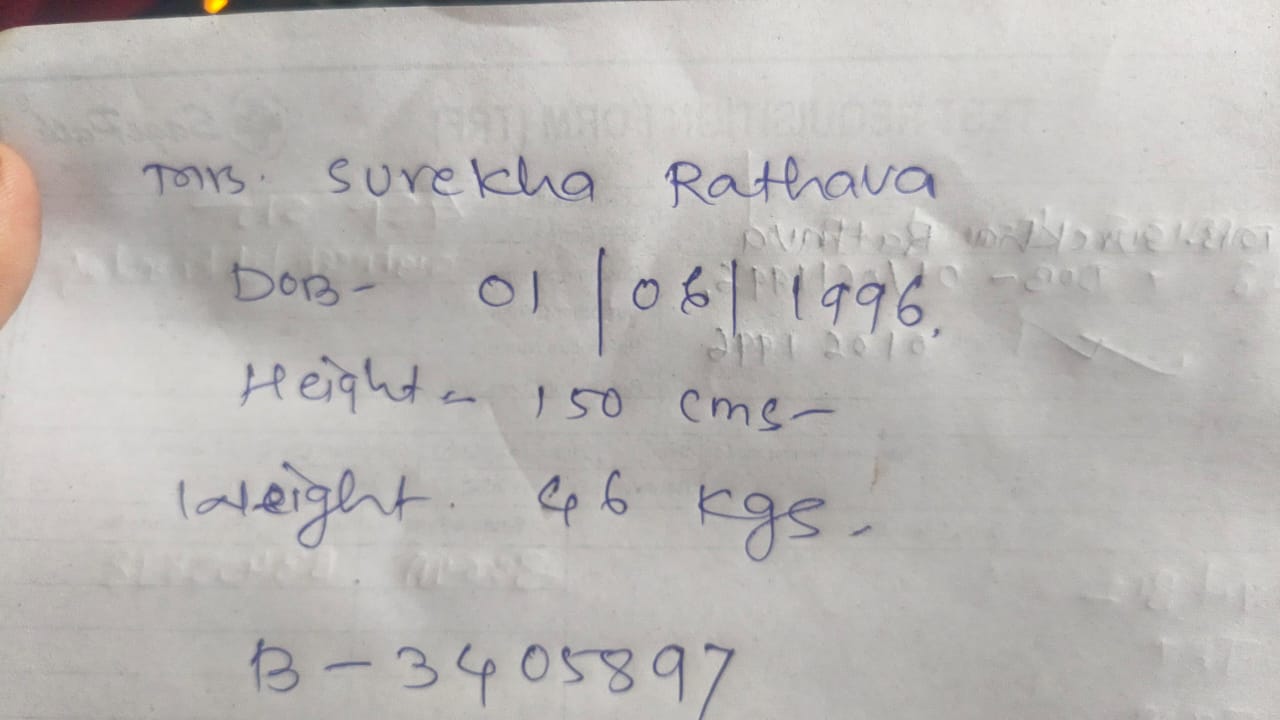 Mrs. Surekha Rathava
DOB - 01/06/1996.
Height - 150 cms -
Weight. 46 kgs.
B - 3405897